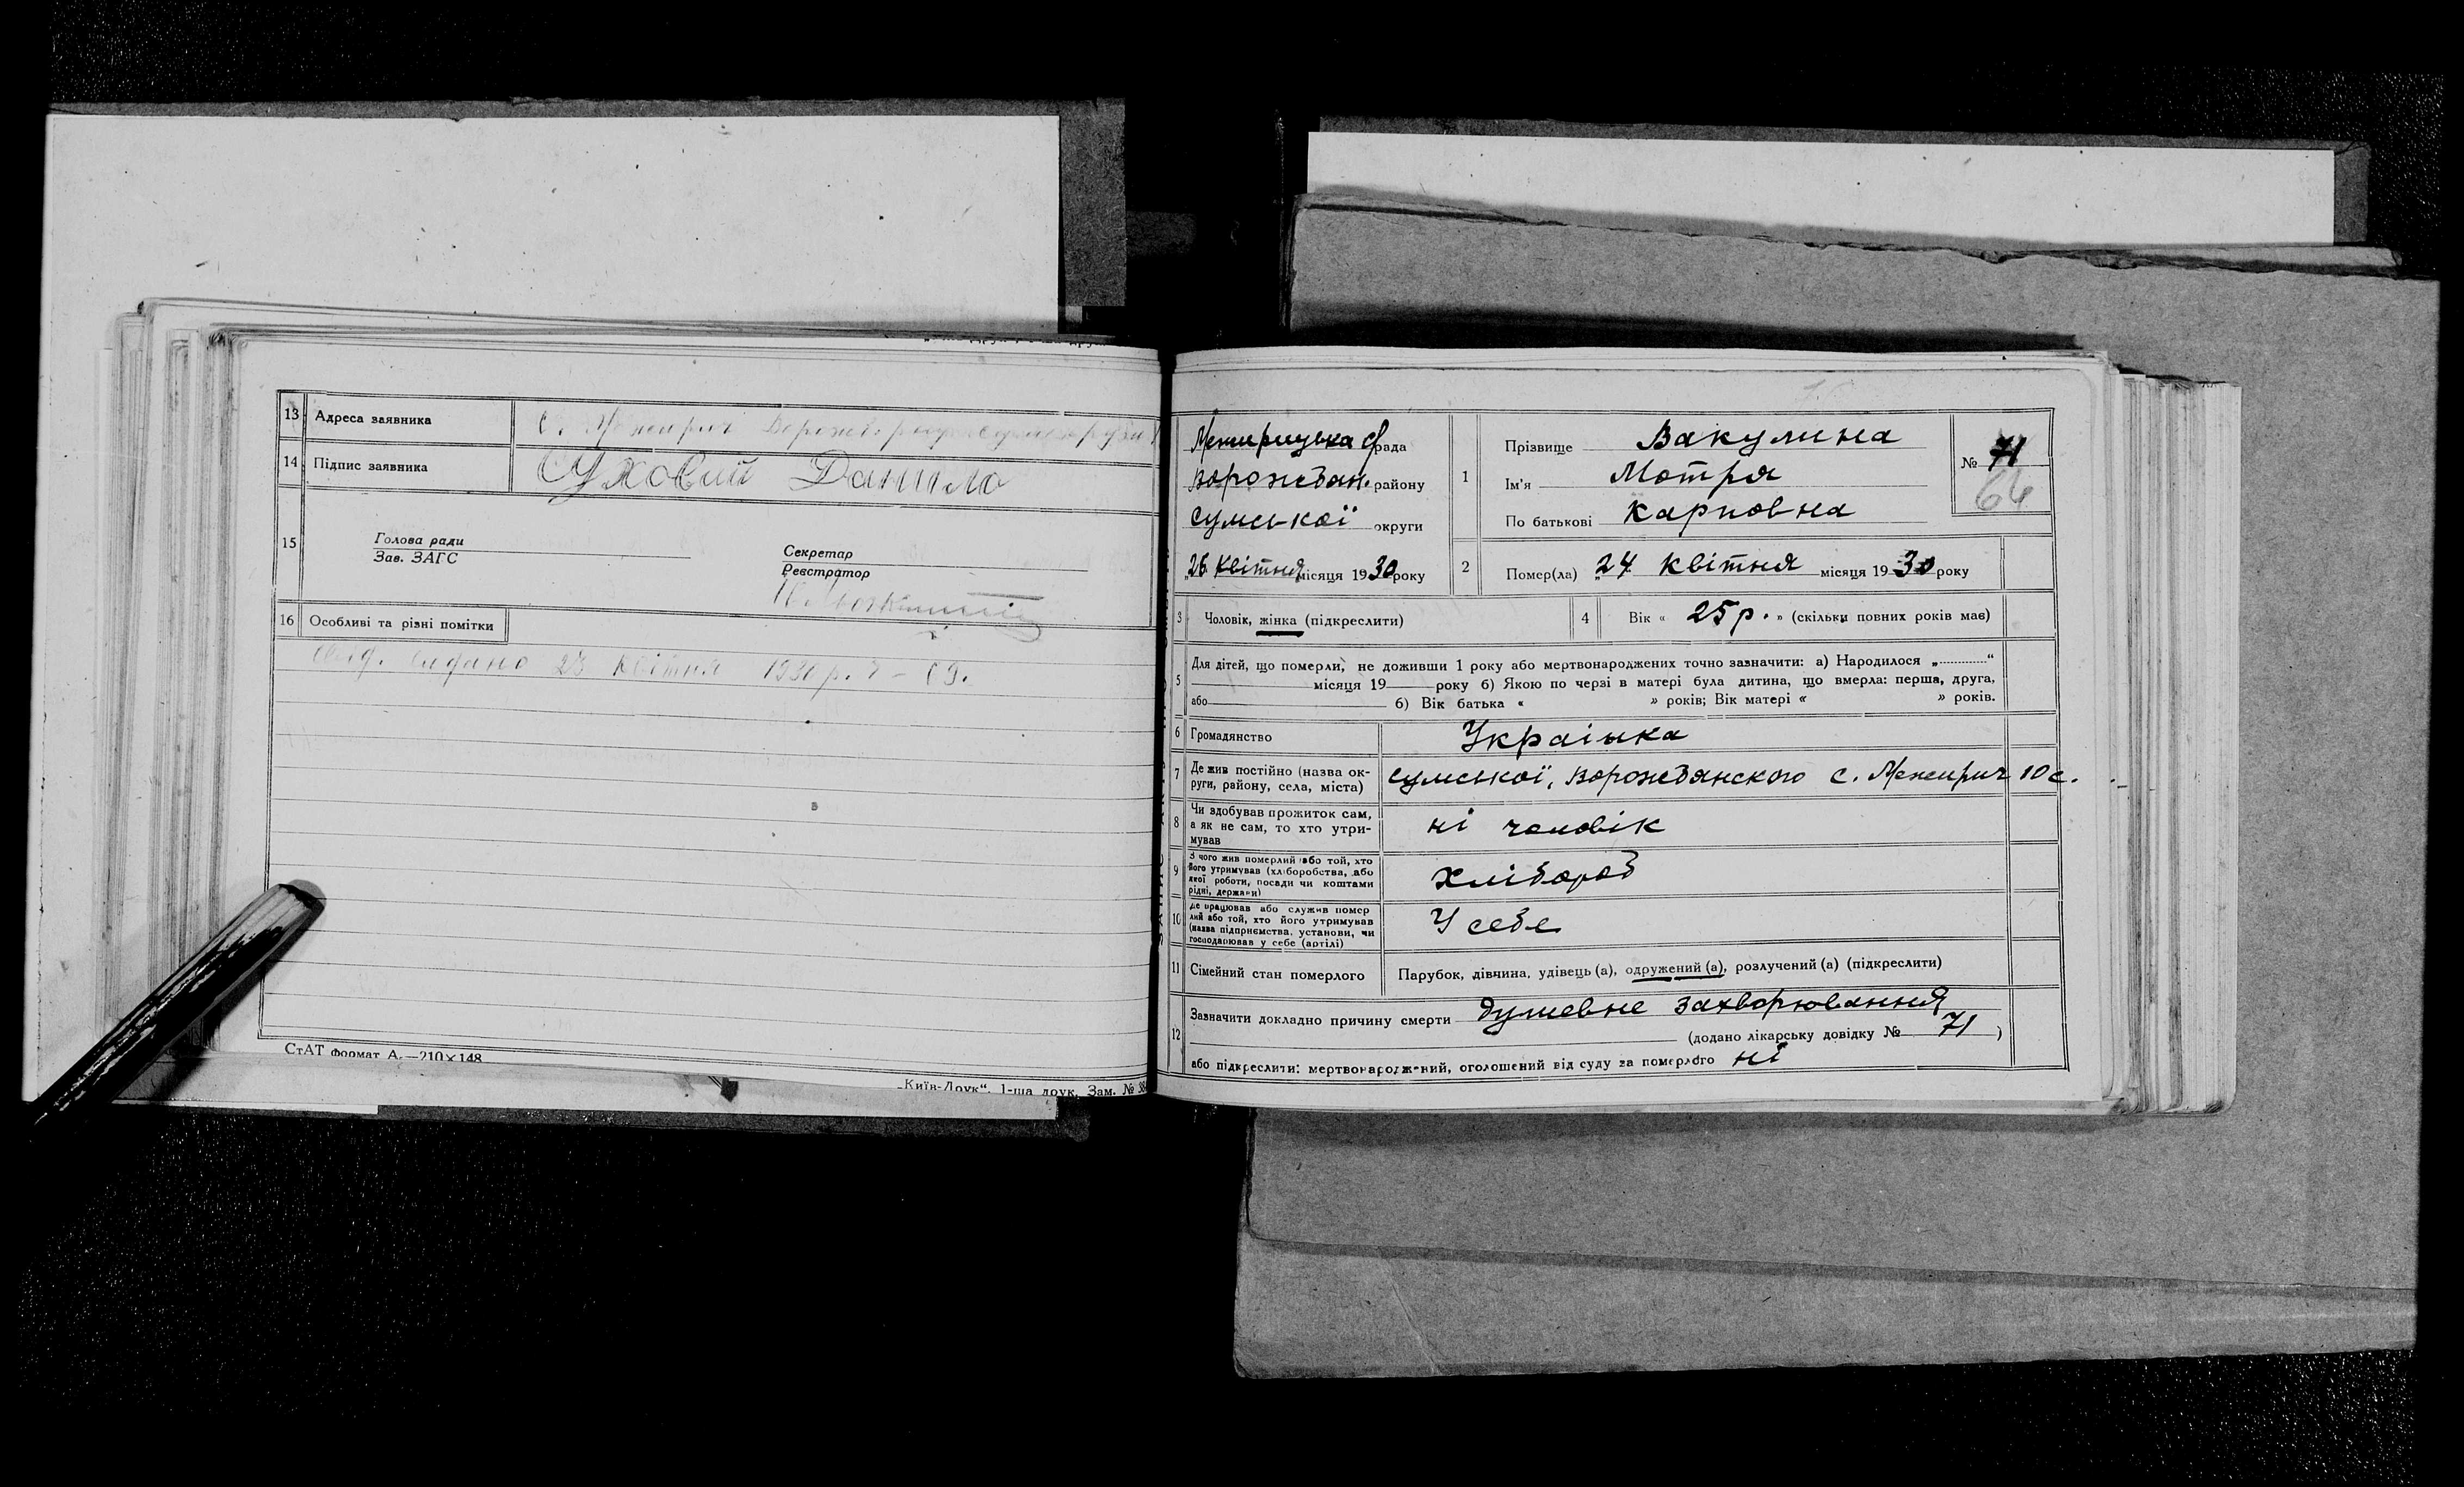 13 Адреса заявника с. Межирич Ворожб.
14 Підпис заявника Суховий Данило
15 Голова ради
Зав. ЗАГС
Секретар
Реєстратор
16 Особливі та різні помітки
видано 23 квітня 1930 р.
СтАТ формат А₅—210×148
„Київ-Друк“, 1-ша друк. Зам. №
Межирицька с/рада
Ворожбян. району
Сумської округи
„26 квітня місяця 1930 року
1 Прізвище Вакулина
Ім'я Мотря
По батькові Карповна
№ 71
66
2 Помер(ла) „24 квітня місяця 1930 року
3 Чоловік, жінка (підкреслити)
4 Вік « 25 р. » (скільки повних років має)
5 Для дітей, що померли, не доживши 1 року або мертвонароджених точно зазначити: а) Народилося „............“
місяця 19 року б) Якою по черзі в матері була дитина, що вмерла: перша, друга,
або б) Вік батька « » років; Вік матері « » років.
6 Громадянство Українка
7 Де жив постійно (назва ок-
руги, району, села, міста) Сумської, Ворожбянского с. Межирич 10 с.
8 Чи здобував прожиток сам,
а як не сам, то хто утри-
мував ні чоловік
9 З чого жив померлий або той, хто
його утримував (хліборобства, або
якої роботи, посади чи коштами
рідні, держави) Хлібороб
10 Де працював або служив помер
лий або той, хто його утримував
(назва підприємства, установи, чи
господарював у себе (артілі) У себе
11 Сімейний стан померлого Парубок, дівчина, удівець (а), одружений (а), розлучений (а) (підкреслити)
12 Зазначити докладно причину смерти душевне захворювання
(додано лікарську довідку № 71 )
або підкреслити: мертвонароджений, оголошений від суду за померлого ні